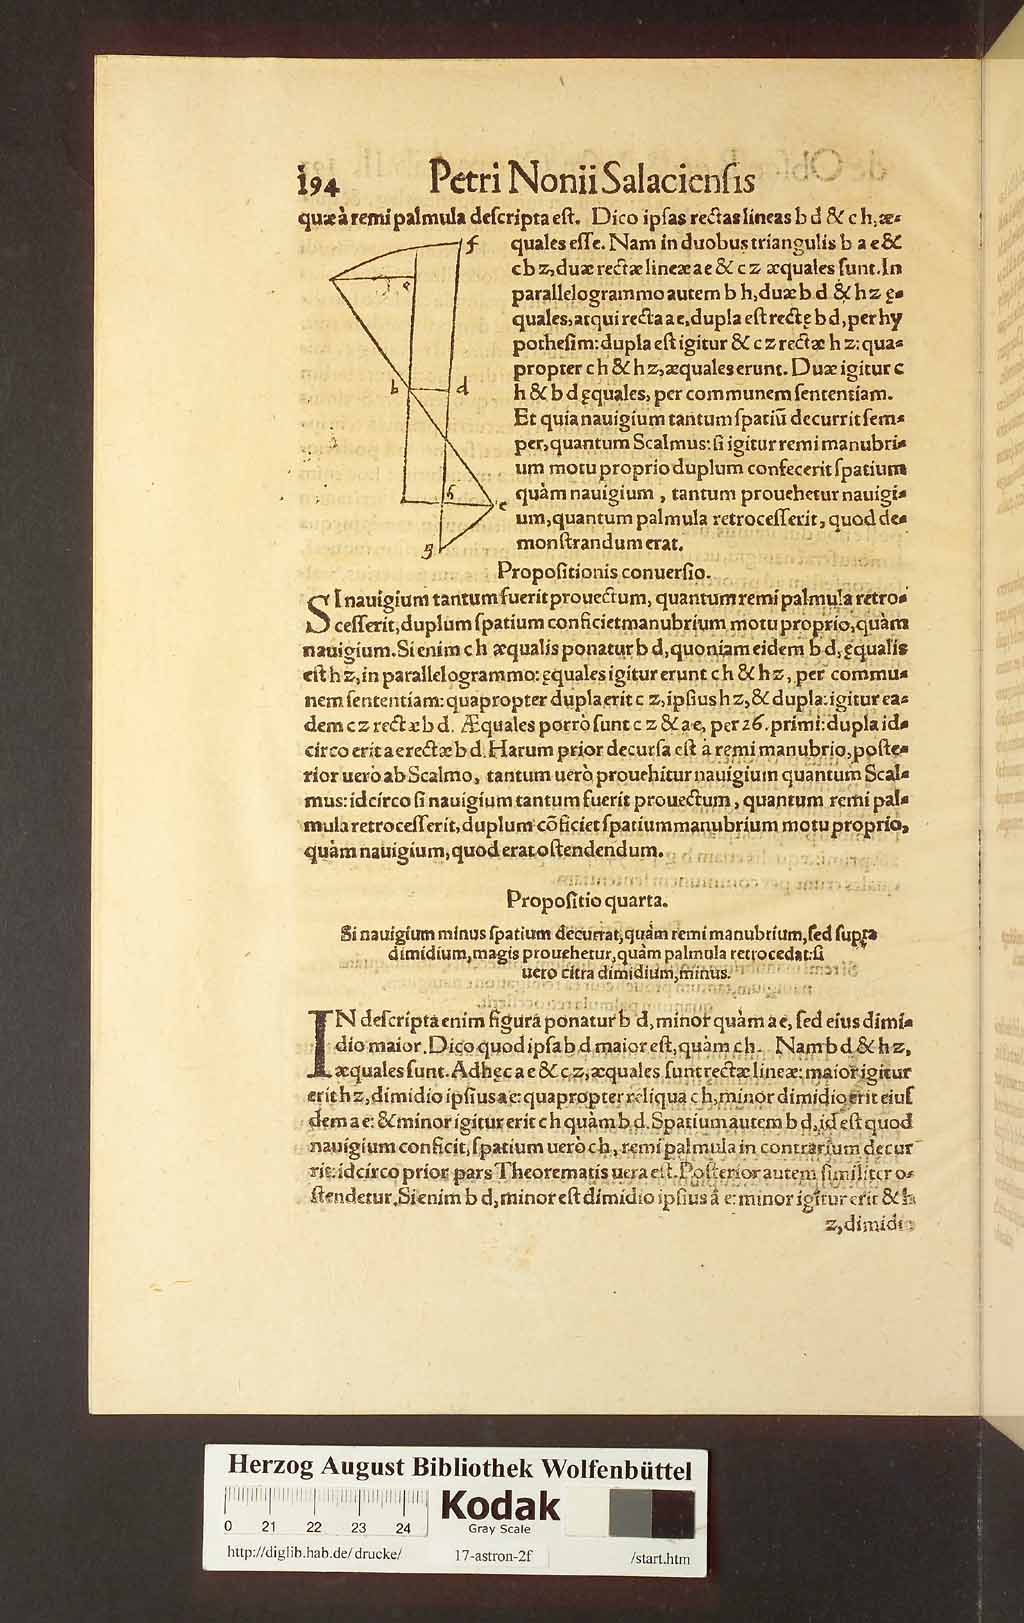 194 Petri Nonii Salaciensis
quæ à remi palmula descripta est. Dico ipsas rectas lineas b d & c h, æ-
quales esse. Nam in duobus triangulis b a e &
c b z, duæ rectæ lineæ a e & c z æquales sunt. In
parallelogrammo autem b h, duæ b d & h z ę-
quales, atqui recta a e, dupla est rectę b d, per hy
pothesim: dupla est igitur & c z rectæ h z: qua-
propter c h & h z, æquales erunt. Duæ igitur c
h & b d ęquales, per communem sententiam.
Et quia nauigium tantum spatiū decurrit sem-
per, quantum Scalmus: si igitur remi manubri-
um motu proprio duplum confecerit spatium
quàm nauigium, tantum prouehetur nauigi-
um, quantum palmula retrocesserit, quod de-
monstrandum erat.
f
e
b
d
h
c
g
Propositionis conuersio.
SI nauigium tantum fuerit prouectum, quantum remi palmula retro-
cesserit, duplum spatium conficiet manubrium motu proprio, quàm
nauigium. Si enim c h æqualis ponatur b d, quoniam eidem b d, ęqualis
est h z, in parallelogrammo: ęquales igitur erunt c h & h z, per commu-
nem sententiam: quapropter dupla erit c z, ipsius h z, & dupla: igitur ea-
dem c z rectæ b d. Æquales porrò sunt c z & a e, per 26. primi: dupla id-
circo erit a e rectæ b d. Harum prior decursa est à remi manubrio, poste-
rior uerò ab Scalmo, tantum uerò prouehitur nauigium quantum Scal-
mus: idcirco si nauigium tantum fuerit prouectum, quantum remi pal-
mula retrocesserit, duplum cōficiet spatium manubrium motu proprio,
quàm nauigium, quod erat ostendendum.
Propositio quarta.
Si nauigium minus spatium decurrat, quàm remi manubrium, sed supra
dimidium, magis prouehetur, quàm palmula retrocedat: si
uero citra dimidium, minus.
IN descripta enim figura ponatur b d, minor quàm a e, sed eius dimi-
dio maior. Dico quod ipsa b d maior est, quàm c h. Nam b d & h z,
æquales sunt. Adhęc a e & c z, æquales sunt rectæ lineæ: maior igitur
erit h z, dimidio ipsius a e: quapropter reliqua c h, minor dimidio erit eius
dem a e: & minor igitur erit c h quàm b d. Spatium autem b d, id est quod
nauigium conficit, spatium uerò c h, remi palmula in contrarium decur
rit: idcirco prior pars Theorematis uera est. Posterior autem similiter o-
stendetur. Si enim b d, minor est dimidio ipsius a e: minor igitur erit & h
z, dimidio
Herzog August Bibliothek Wolfenbüttel
0 21 22 23 24
Kodak
Gray Scale
http://diglib.hab.de/drucke/ 17-astron-2f /start.htm